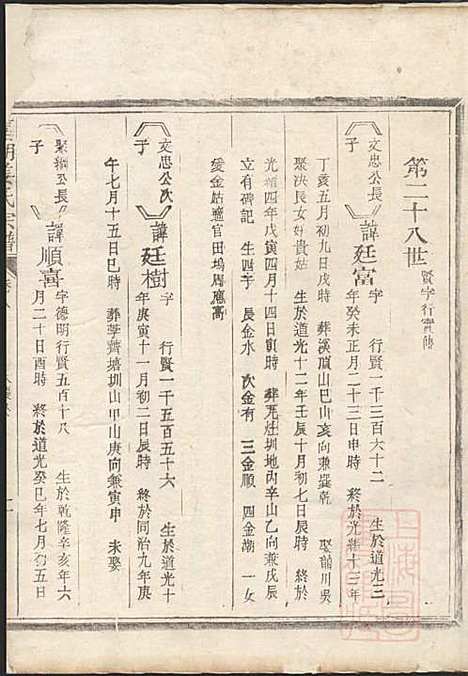 第二十八世 賢字行實傳
文忠公長子 諱廷富 字 行賢一千三百六十二 生於道光三
年癸未正月二十三日申時 終於光緒十三年
丁亥五月初九日戌時 葬溪頂山巳山亥向兼巽乾 娶前川吳
聚洪長女姊貴姑 生於道光十二年壬辰十月初七日辰時 終於
光緒四年戊寅四月十四日寅時 葬圳地丙辛山乙向兼戊辰
立有碑記 生四子 長金水 次金有 三金順 四金潮 一女
愛金姑適官田塢周應高
文忠公次子 諱廷樹 字 行賢一千五百五十六 生於道光十
年庚寅十一月初二日辰時 終於同治九年庚
午七月十五日巳時 葬荸薺塘圳山甲山庚向兼寅申 未娶
聚綱公長子 諱順喜 字德明行賢五百十八 生於乾隆辛亥年六
月二十日酉時 終於道光癸巳年七月初五日
氏宗譜